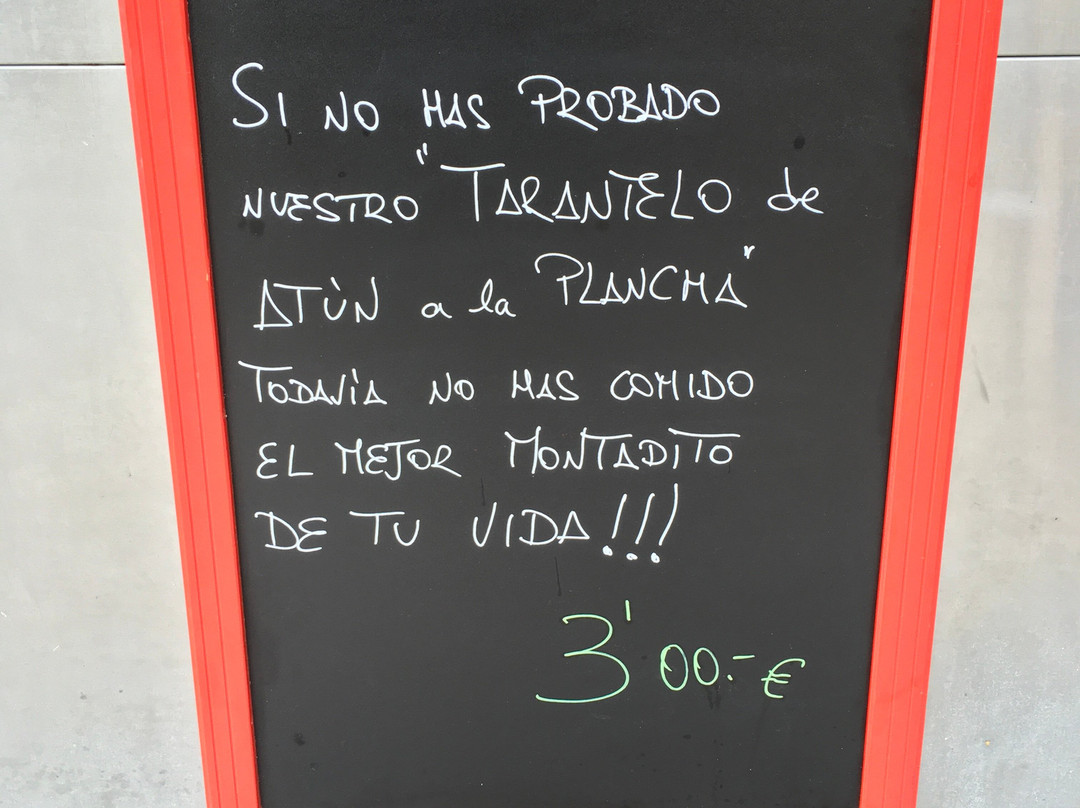 SI NO HAS PROBADO
NUESTRO "TARANTELO de
ATÙN a la PLANCHA"
TODAVÌA NO HAS COMIDO
EL MEJOR MONTADITO
DE TU VIDA!!!
3'00.-€